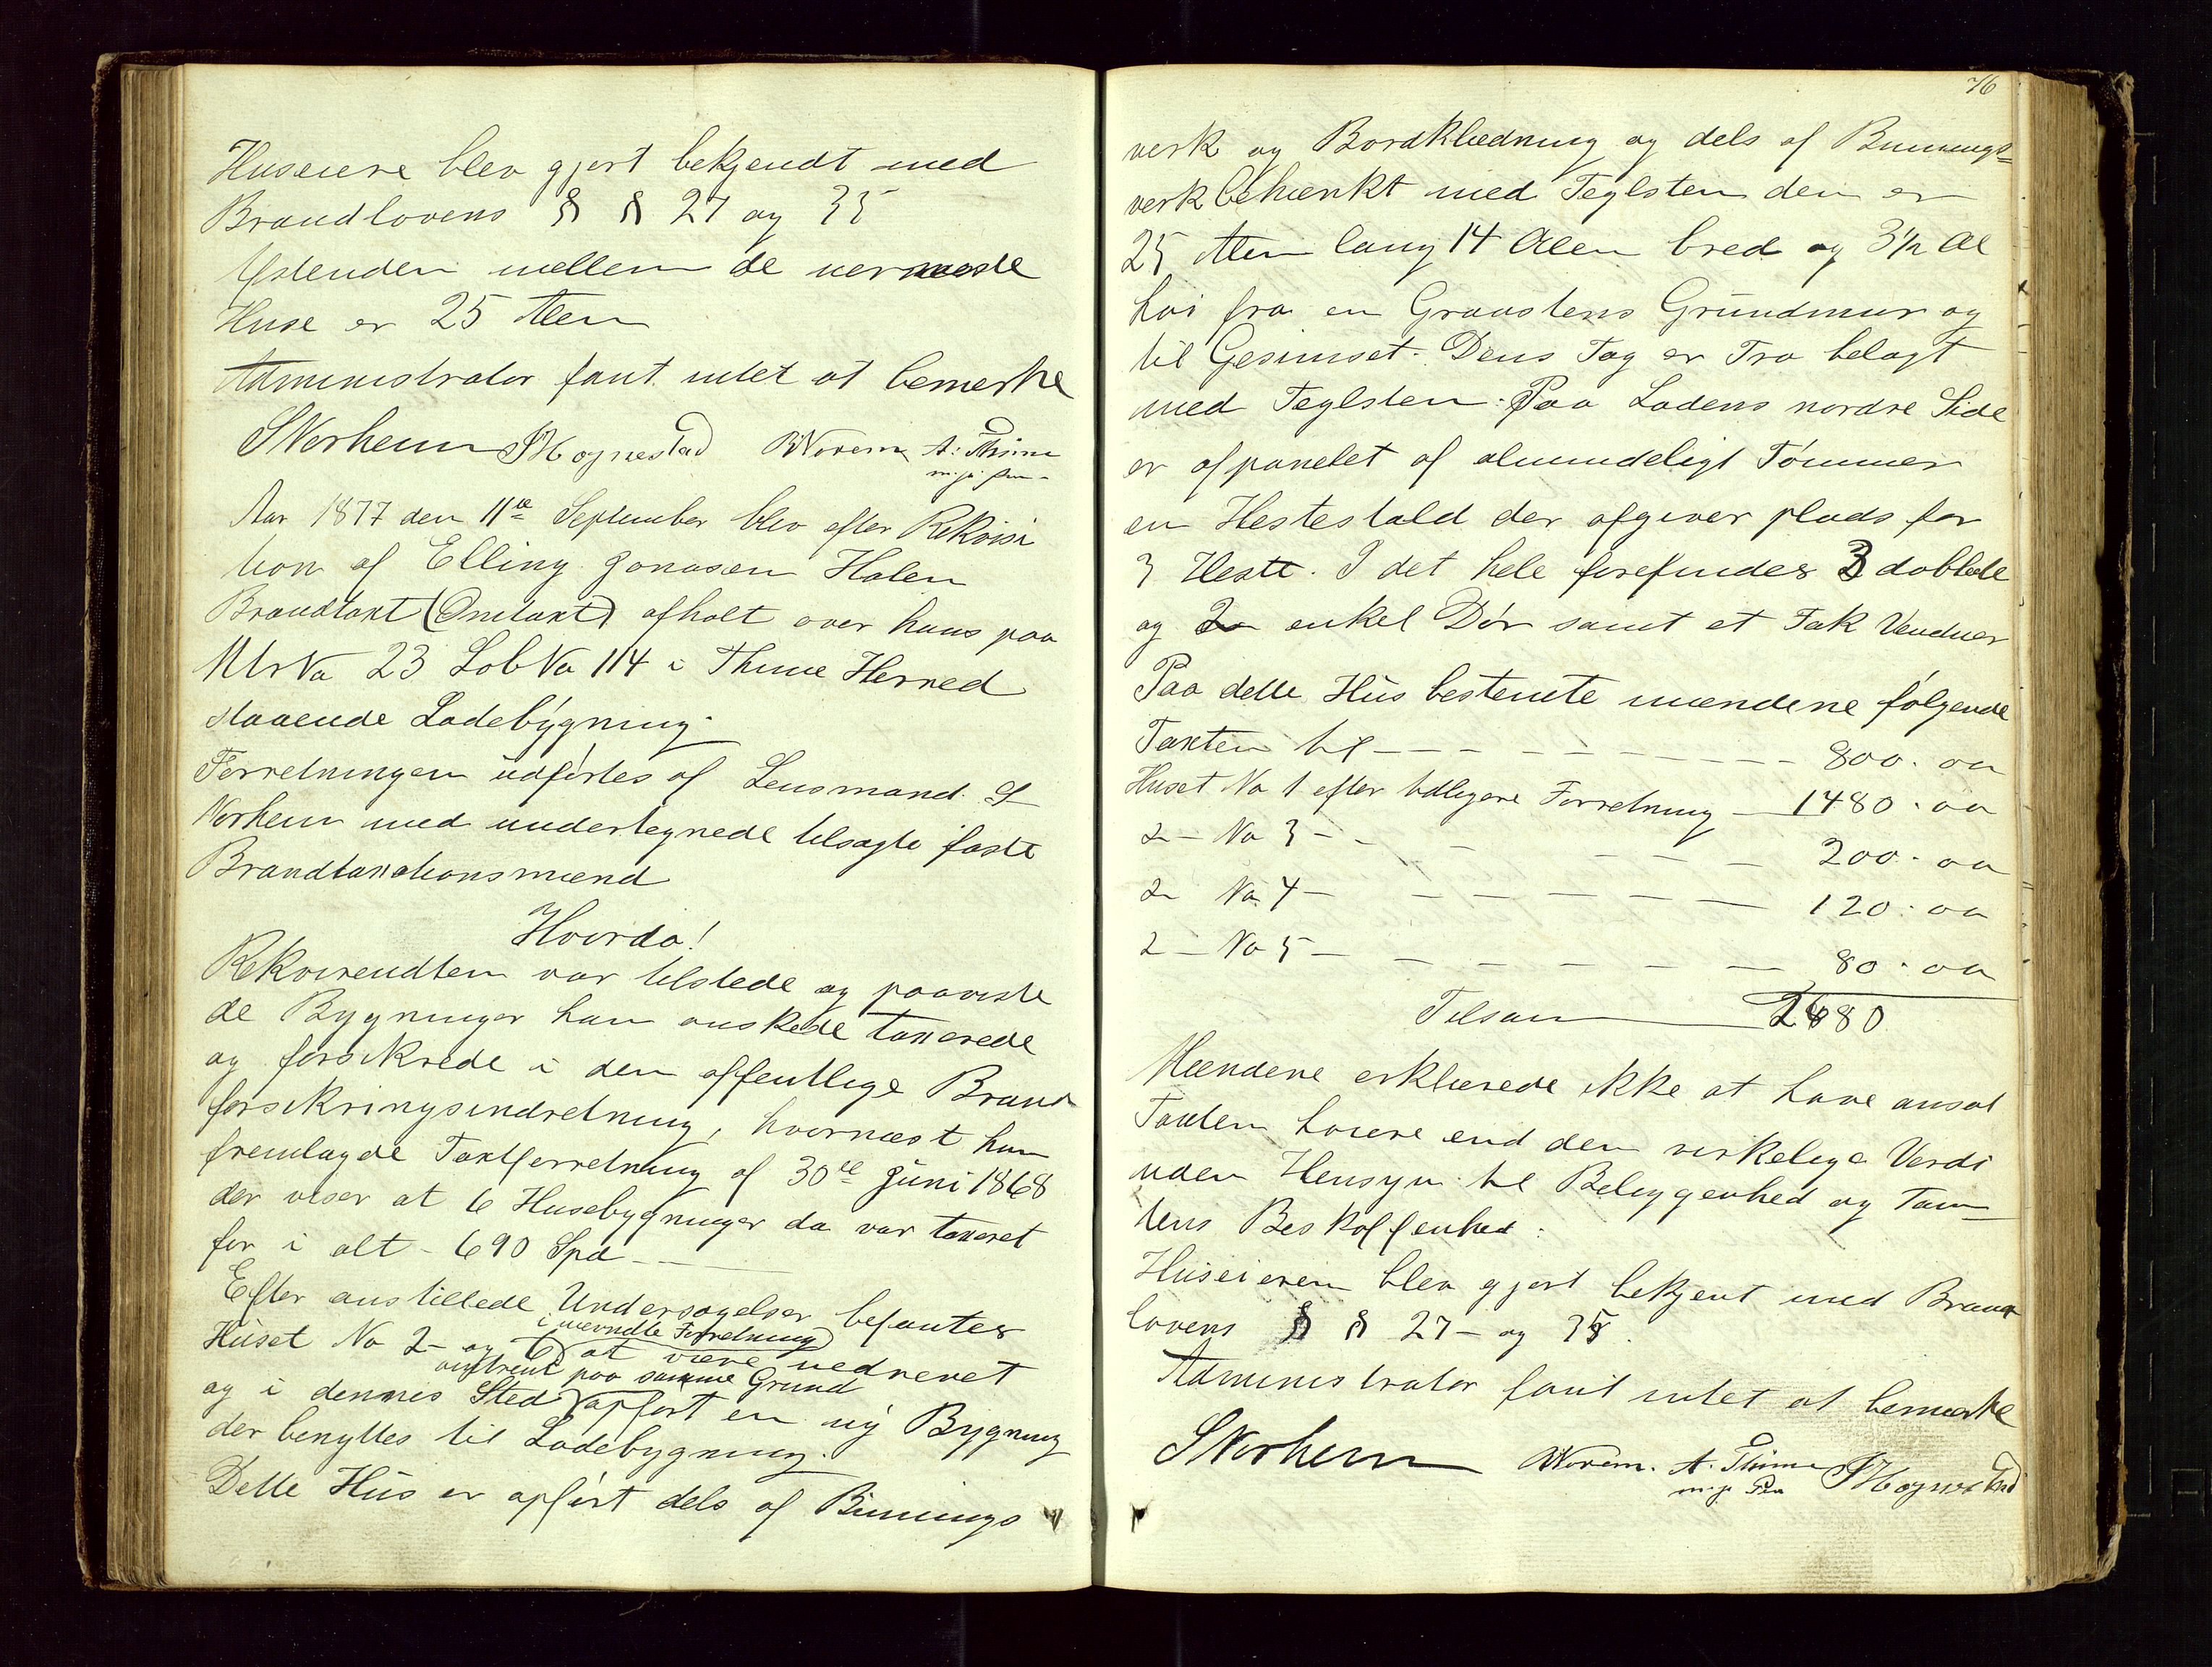 Huseiere blev gjort bekjendt med
Brandlovens § § 27 og 35
Afstenden mellem de nermeste
Huse er 25 Alen
Administrator fant intet at bemerke
S Norheim S Hognestad B Norem A. Thime
m. ja. pen
Aar 1877 den 11te September blev efter Rekvisi
tion af Elling Jonasen Holen
Brandtaxt (Omtaxt) afholt over hans paa
Mtr No 23 Lob No 114 i Thime Herred
staaende Ladebygning.
Forretningen udførtes af Lensmand S
Norheim med undertegnede tilsagte faste
Brandtaxationsmænd
Hvorda!
Rekvirendten var tilstede og paaviste
de Bygninger han onskede taxerede
og forsikrede i den offentlige Brand
forsikringsindretning, hvornæst han
fremlagde Taxtforretning af 30te Juni 1868
der viser at 6 Husebygninger da var taxeret
for i alt - 690 Spd
Efter anstillede Undersøgelser befantes
i nevndte Forretning
Huset No 2 - og 6 at være nedrevet
omtrent paa samme Grund
og i dennes Sted opført en ny Bygning
der benyttes til Ladebygning.
Dette Hus er opført dels af Binnings
76
verk og Bordklædning og dels af Binnings=
verk behænkt med Teglsten den er
25 Alen lang 14 Alen bred og 3 1/2 Al
høi fra en Graastens Grundmur og
til Gesimset. Dens Tag er Tro belagt
med Teglsten. Paa Ladens nordre Side
er afpanelet af almindeligt Tømmer
en Hestestald der afgiver plads for
3 Heste. I det hele forefindes 3 doblede
og 2 enkel Dør samt et Fak Venduer
Paa dette Hus bestemte mændene følgende
Taxten til - - - - - - 800. oo
Huset No 1 efter tidligere Forretning - 1480. oo
2 - No 3 - - - - - 200. oo
2 No 4 - - - - - 120. oo
2 - No 5 - - - - - 80. oo
Tilsam 2680
Mændene erklærede ikke at have ansat
Taxten høiere end den virkelige Verdi
uden Hensyn til Beliggenhed og Tom
tens Beskaffenhed.
Huseieren blev gjort bekjent med Brand
lovens § § 27 - og 35.
Administrator fant intet at bemerke
S Norheim B Norem. A. Thime S Hognestad
m. ja Pen